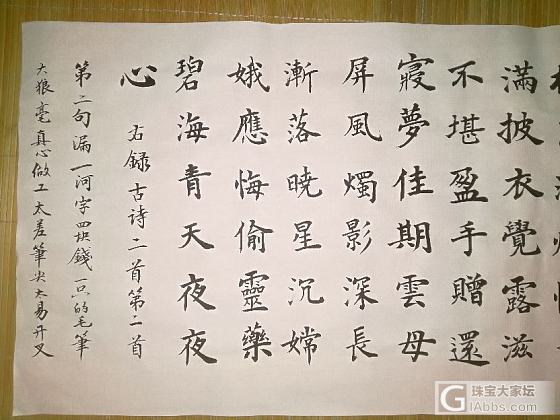 滿披衣覺露滋
不堪盈手贈還
寢夢佳期雲母
屏風燭影深長
漸落曉星沉嫦
娥應悔偷靈藥
碧海青天夜夜
心
右録古诗二首第二首
第二句漏一河字四块錢一只的毛筆
大狼毫真心做工太差筆尖太易开叉
珠宝大家坛
GIAbbs.com